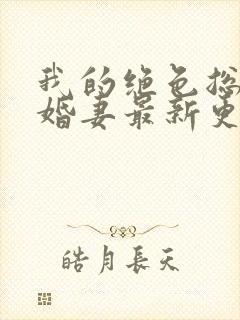 我的绝色总
婚妻最新更
皓月長天